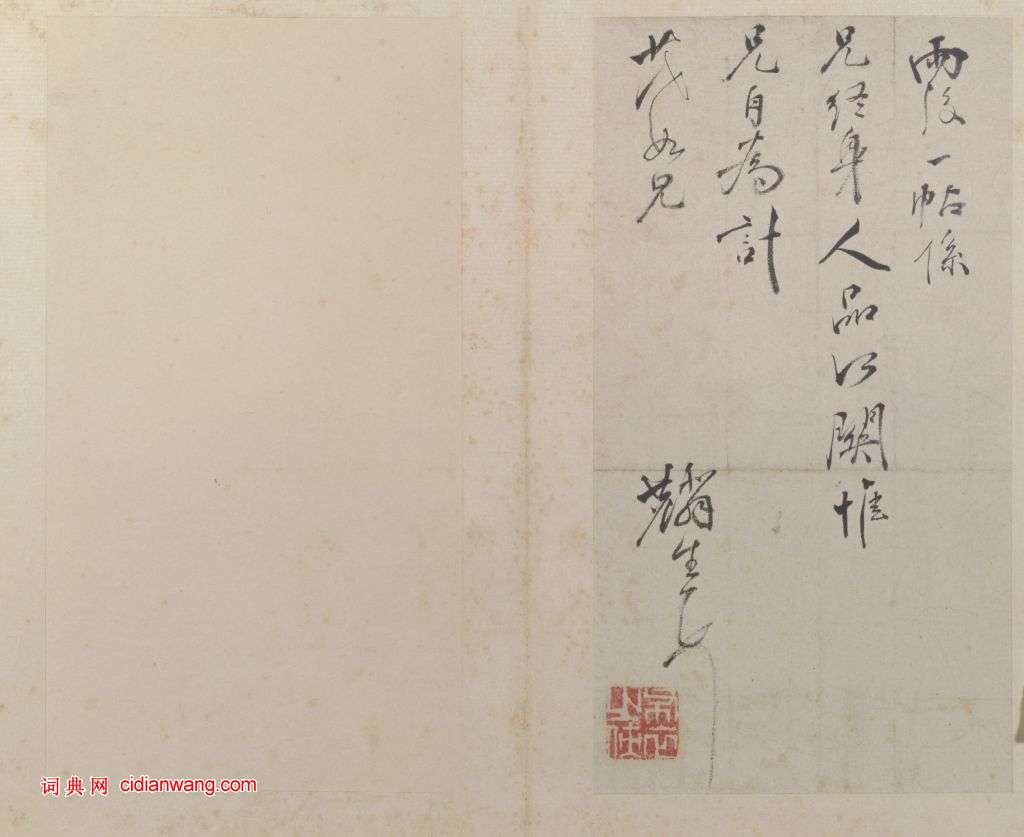 雨後一帖係
兄終身人品所關惟
兄自為計
茂如兄
麟生
词典网 cidianwang.com